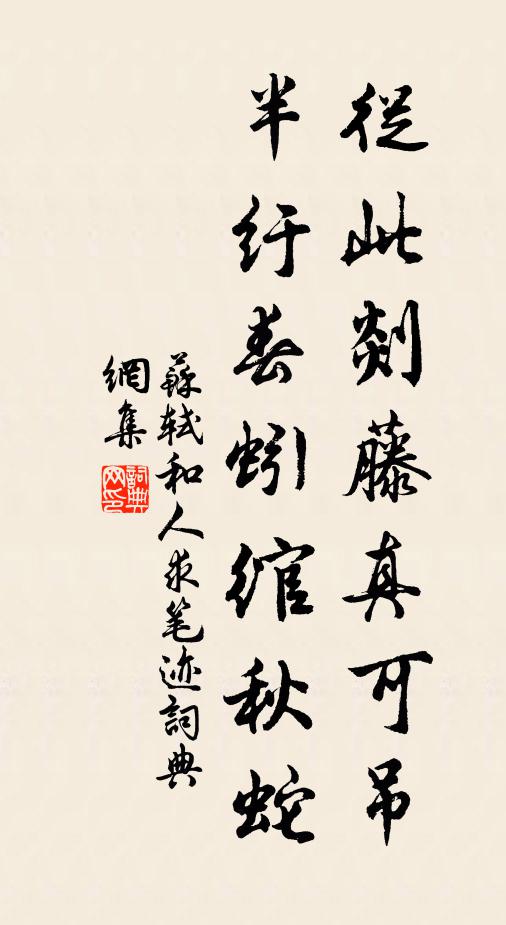 從此剡藤真可吊
半紆春蚓綰秋蛇
蘇軾和人求笔迹詞典
網集
詞典
网印